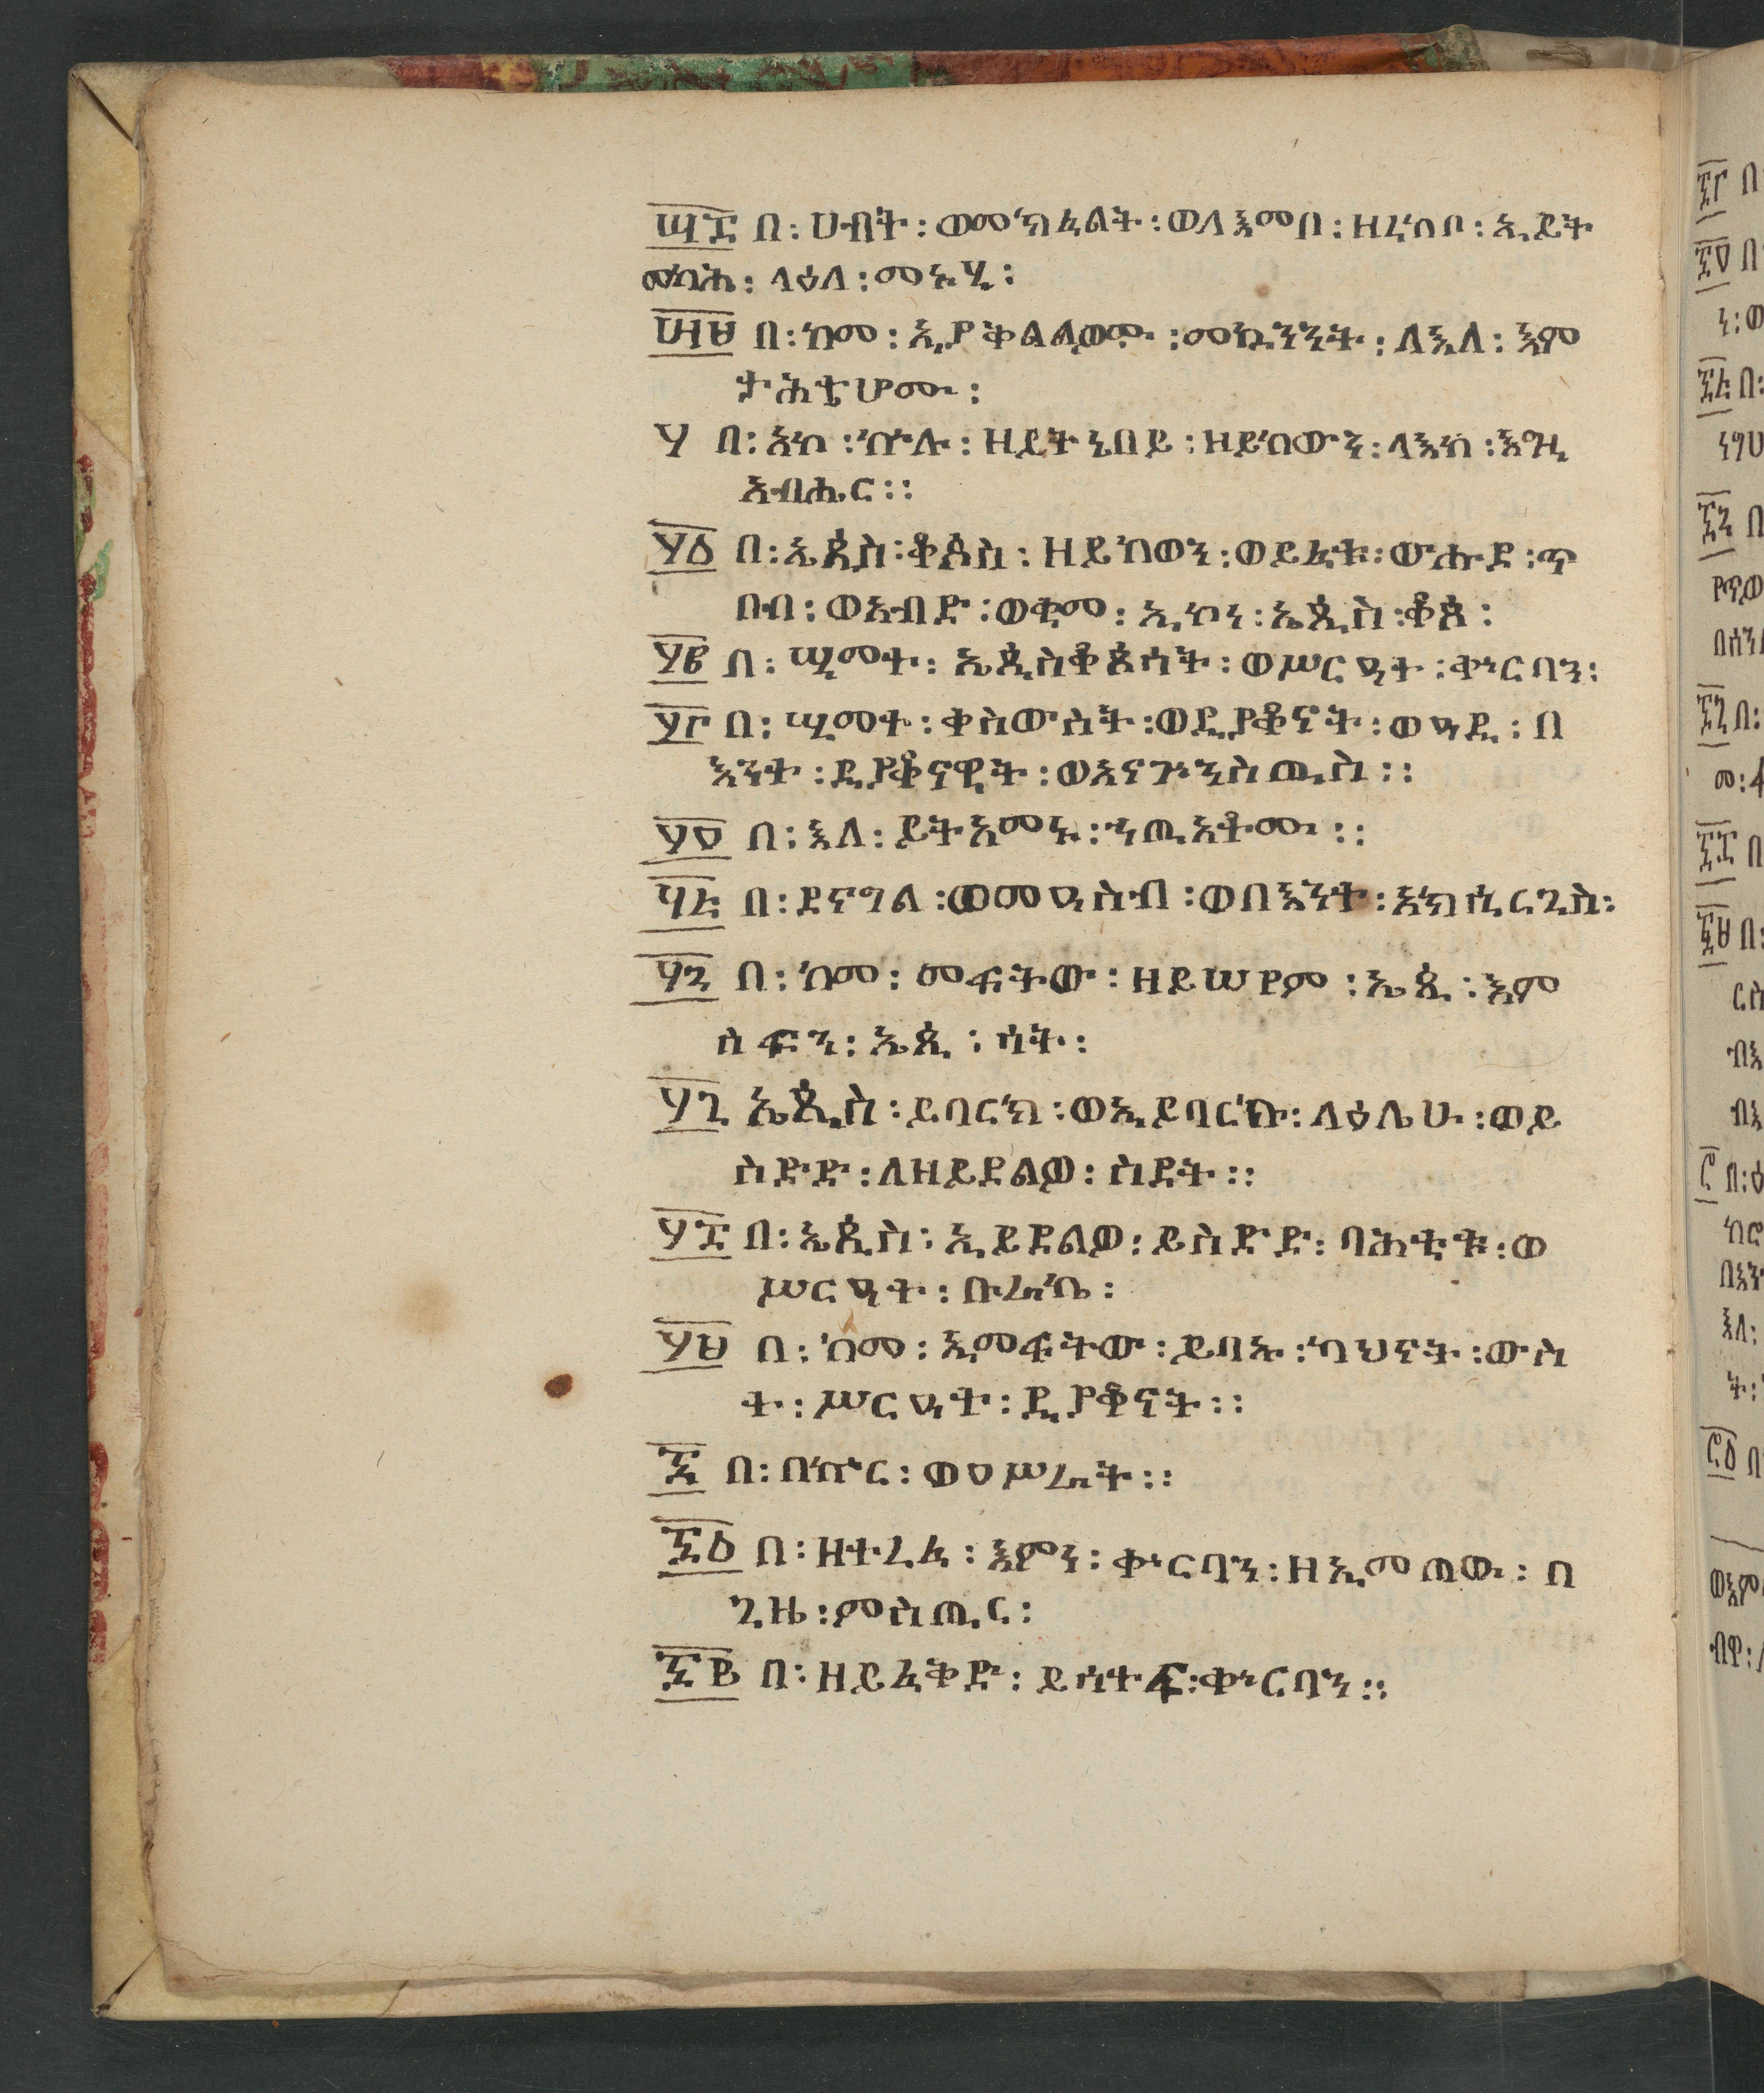 ፵፰ በ፡ ሀብት፡ ወመክፈልት፡ ወለእመቦ፡ ዘረከቦ፡ ኢይት
መካሕ፡ ላዕለ፡ መኑሂ፡
፵፱ በ፡ ከመ፡ ኢያቅልልዎሙ፡ መኳንንት፡ ለእለ፡ እም
ታሕቴሆሙ፡
፶ በ፡ አኮ፡ ኵሉ፡ ዘይትኔበይ፡ ዘይከውን፡ ላእከ፡ እግዚ
አብሔር፡፡
፶፩ በ፡ ኤጲስ፡ ቆጶስ፡ ዘይከውን፡ ወይፈቱ፡ ውሑደ፡ ጥ
በብ፡ ወአብድ፡ ወቂመ፡ ኢኮነ፡ ኤጲስ፡ ቆጶ፡
፶፪ በ፡ ሢመተ፡ ኤጲስቆጶሳት፡ ወሥርዓተ፡ ቍርባን፡
፶፫ በ፡ ሢመተ፡ ቀሰውስት፡ ወዲያቆኖት፡ ወዓዲ፡ በ
እንተ፡ ዲያቆናዊት፡ ወአናጉንስጢስ፡፡
፶፬ በ፡ እለ፡ ይትአመኑ፡ ኀጢአቶሙ፡፡
፶፭ በ፡ ደናግል፡ ወመዓስብ፡ ወበእንተ፡ አክሲርጊስ፡
፶፮ በ፡ ከመ፡ መፍትው፡ ዘይሠየም፡ ኤጲ፡ እም
ሰፍን፡ ኤጲ፡ ሳት፡
፶፯ ኤጲስ፡ ይባርክ፡ ወኢይባርኩ፡ ላዕሌሁ፡ ወይ
ስድድ፡ ለዘይደልዎ፡ ስደት፡፡
፶፰ በ፡ ኤጲስ፡ ኢይደልዎ፡ ይስድድ፡ ባሕቲቱ፡ ወ
ሥርዓተ፡ ቡራኬ፡
፶፱ በ፡ ከመ፡ ኢመፍትው፡ ይባኡ፡ ካህናት፡ ውስ
ተ፡ ሥርዓተ፡ ዲያቆናት፡፡
፷ በ፡ በኵር፡ ወዐሥራት፡፡
፷፩ በ፡ ዘተረፈ፡ እምነ፡ ቍርባን፡ ዘኢመጠወ፡ በ
ጊዜ፡ ምስጢር፡
፷፪ በ፡ ዘይፈቅድ፡ ይሳተፍ፡ ቍርባን፡፡